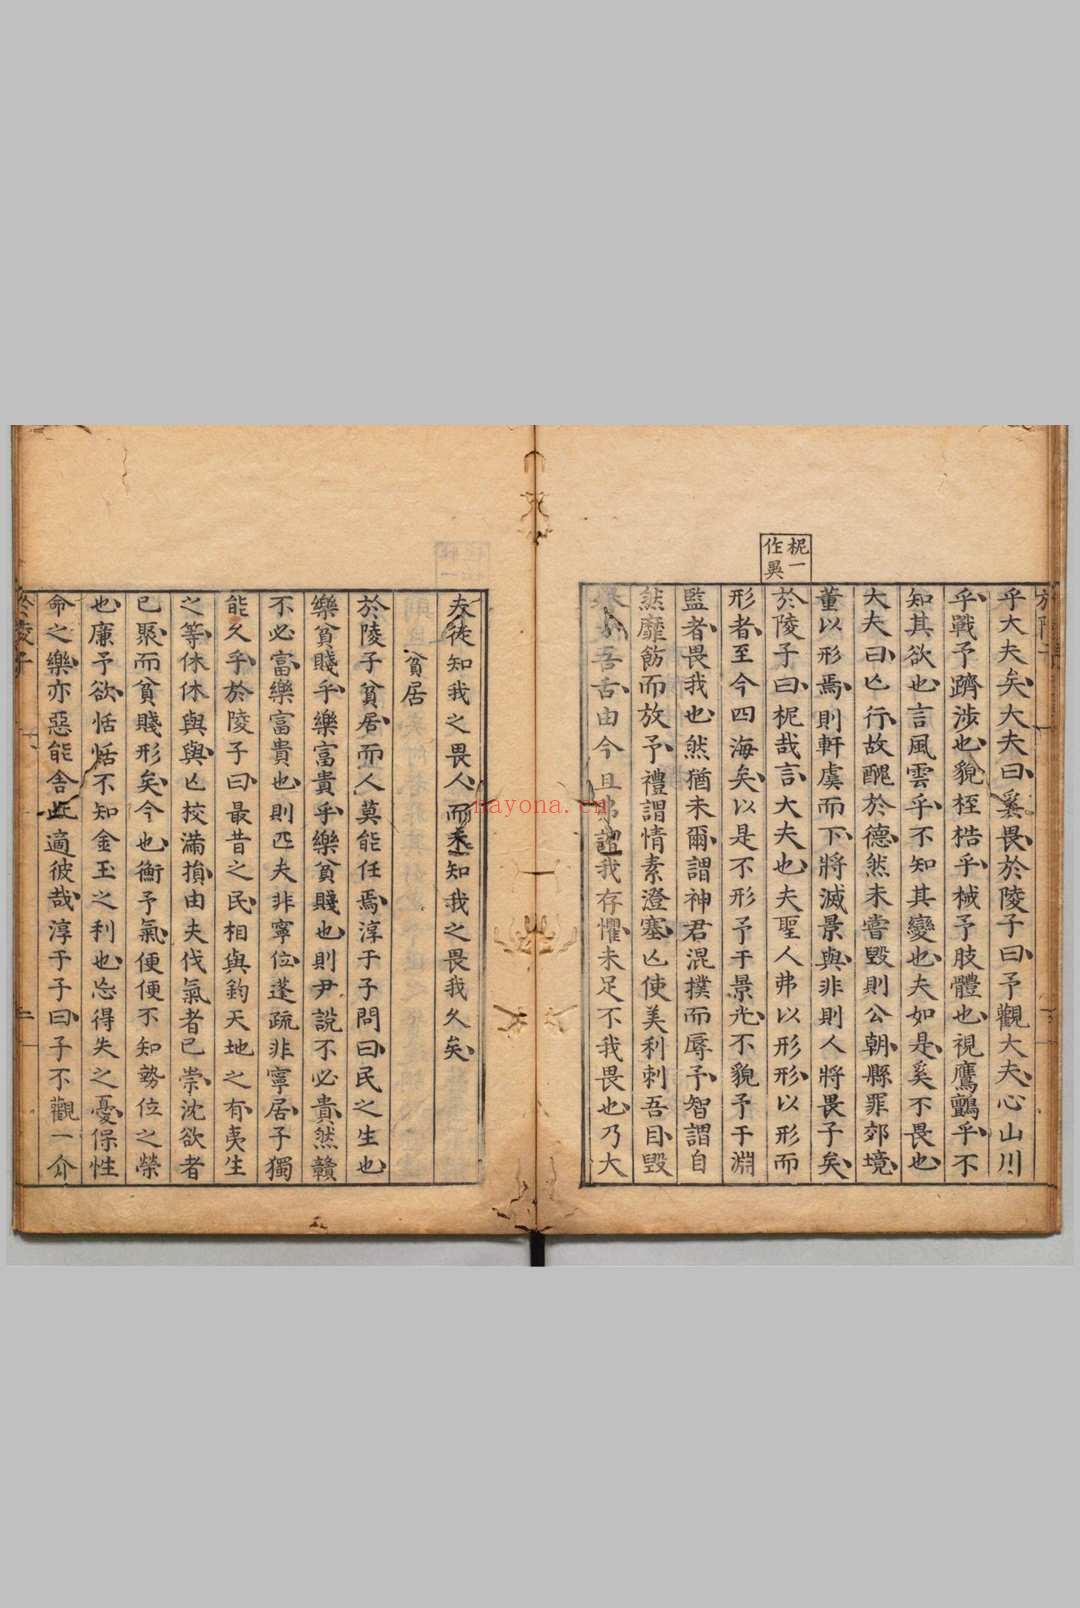 乎大夫矣大夫曰奚畏於陵子曰予觀大夫心山川
乎戰予躋涉也貌桎梏乎械予肢體也視鷹鸇乎不
知其欲也言風雲乎不知其變也夫如是奚不畏也
大夫曰亾行故醜於德然未嘗毀則公朝縣罪郊境
董以形焉則軒虞而下將滅景與非則人將畏子矣
柅一
作異
於陵子曰柅哉言大夫也夫聖人弗以形形以形而
形者至今四海矣以是不形予于景光不貌予于淵
監者畏我也然猶未爾謂神君混撲而辱予智謂自
然靡飭而放予禮謂情素澄塞亾使美利刺吾目毀
吾舌由今且弗謂我存懼未足不我畏也乃大
夫徒知我之畏人而未知我之畏我久矣
貧居
於陵子貧居而人莫能任焉淳于子問曰民之生也
樂貧賤乎樂富貴乎樂貧賤也則尹說不必貴然贛
不必富樂富貴也則匹夫非寧位蓬疏非寧居子獨
能久乎於陵子曰最昔之民相與鈞天地之有夷生
之等休休與與亾挍滿損由夫伐氣者已崇沈欲者
已聚而貧賤形矣今也衡予氣便便不知勢位之榮
也廉予欲恬恬不知金玉之利也忘得失之憂保性
命之樂亦惡能舍此適彼哉淳于子曰子不觀一介
於陵子
nayona.cn